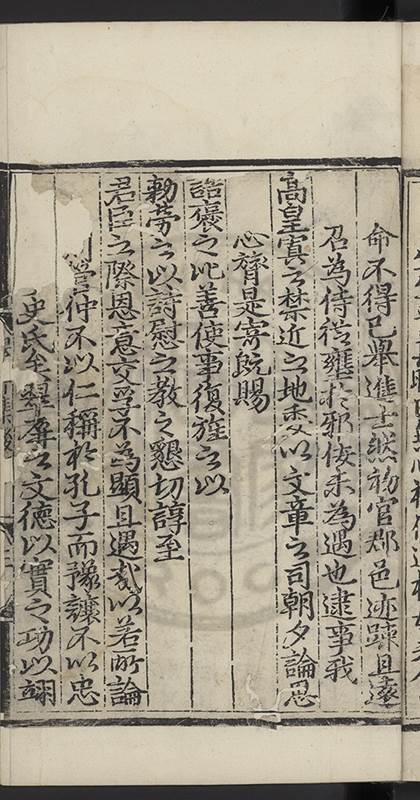 命不得已舉進士然初官郡邑迹踈且遠
召為侍從壅於邪佞未為遇也逮事我
高皇寘之禁近之地委以文章之司朝夕論思
心膂是寄旣賜
誥褒之比善使事復旌之以
勑勞之以詩慰之教之懇切諄至
君臣之際恩意交孚不為顯且遇哉以若所論
管仲不以仁稱於孔子而豫讓不以忠
史氏矣羣之文德以實之功以翊